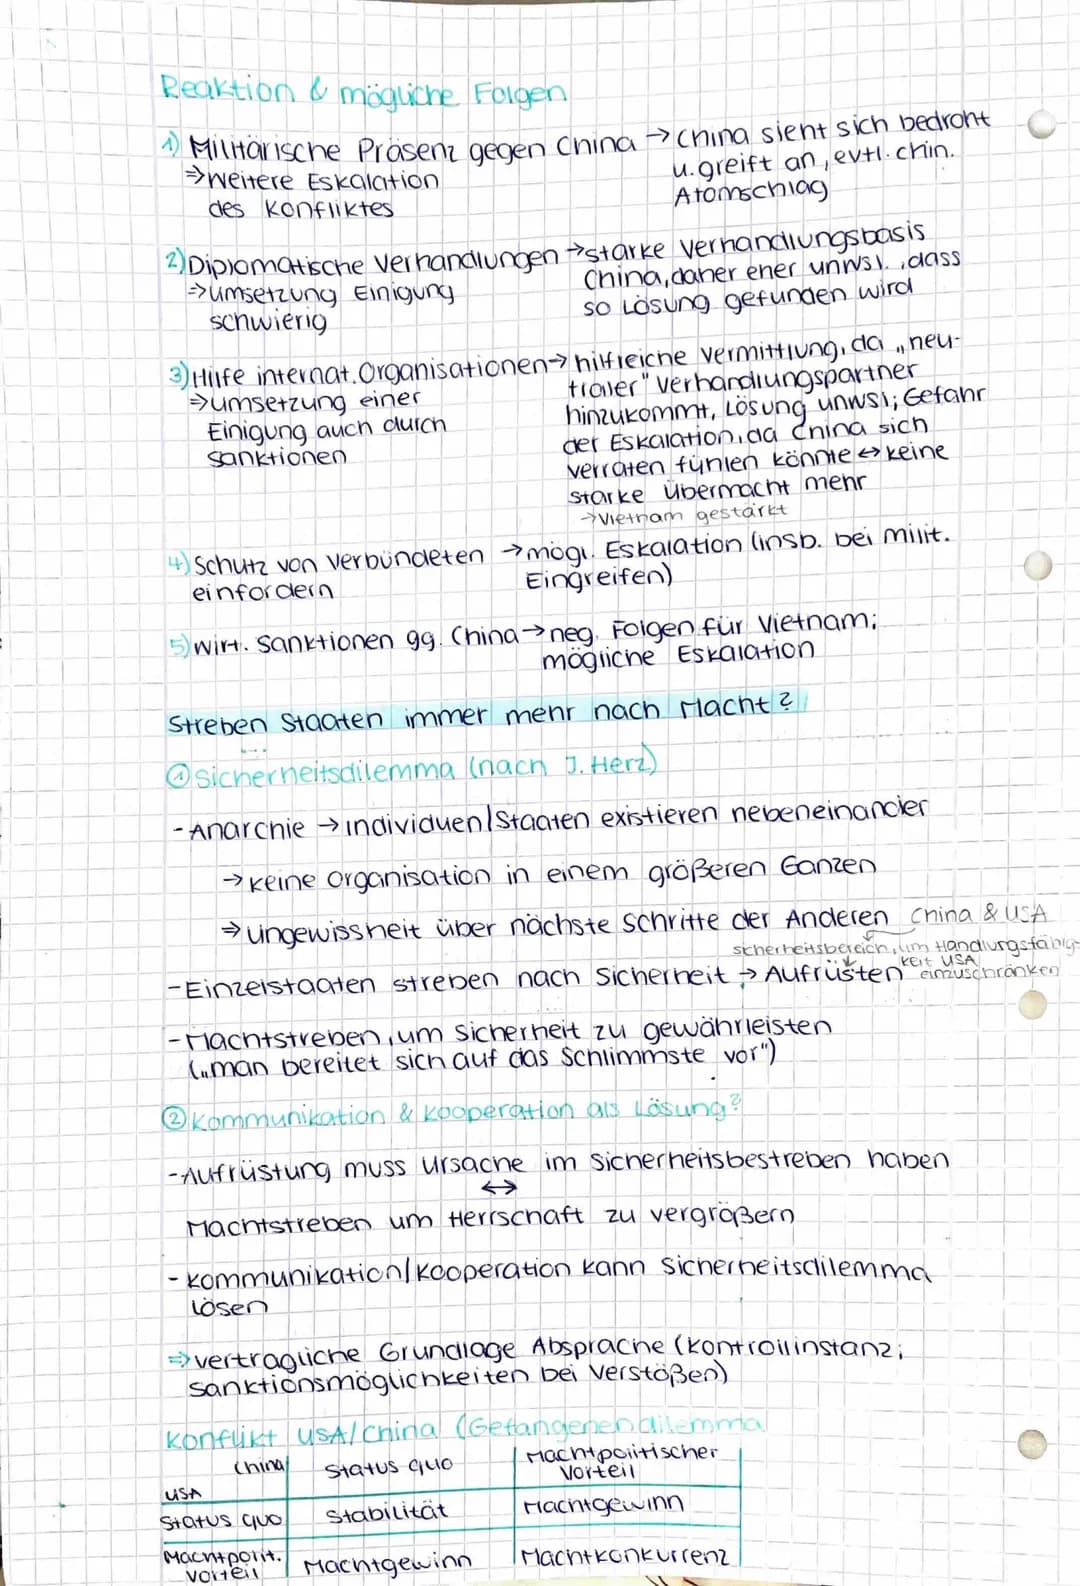 Reaktion & mögliche Folgen
1) Militärische Präsenz gegen China → China sieht sich bedroht
⇒ Weitere Eskalation u. greift an, evtl. chin.
des Konfliktes Atomschlag
2) Diplomatische Verhandlungen → starke Verhandlungsbasis
⇒ Umsetzung Einigung China, daher eher unwsl., dass
schwierig so Lösung gefunden wird
3) Hilfe internat. Organisationen → hilfreiche Vermittlung, da „neu-
⇒ Umsetzung einer traler" Verhandlungspartner
Einigung auch durch hinzukommt, Lösung unwsl; Gefahr
Sanktionen der Eskalation, da China sich
verraten fühlen könnte ↔ keine
starke Übermacht mehr
→ Vietnam gestärkt
4) Schutz von Verbündeten → mögl. Eskalation (insb. bei milit.
einfordern Eingreifen)
5) Wirt. Sanktionen gg. China → neg. Folgen für Vietnam;
mögliche Eskalation
Streben Staaten immer mehr nach Macht?
① Sicherheitsdilemma (nach J. Herz)
- Anarchie → Individuen/Staaten existieren nebeneinander
→ keine Organisation in einem größeren Ganzen
⇒ Ungewissheit über nächste Schritte der Anderen China & USA
Sicherheitsbereich, um Handlungsfähig-
keit USA
- Einzelstaaten streben nach Sicherheit → Aufrüsten einzuschränken
- Machtstreben, um Sicherheit zu gewährleisten
(„man bereitet sich auf das Schlimmste vor")
② Kommunikation & Kooperation als Lösung?
- Aufrüstung muss Ursache im Sicherheitsbestreben haben
↔
Machtstreben um Herrschaft zu vergrößern
- Kommunikation/Kooperation kann Sicherheitsdilemma
lösen
⇒ vertragliche Grundlage Absprache (Kontrollinstanz;
Sanktionsmöglichkeiten bei Verstößen)
Konflikt USA/China (Gefangenendilemma
China Status quo Machtpolitischer
Vorteil
USA
Status quo Stabilität Machtgewinn
Machtpolit.
Vorteil Machtgewinn Machtkonkurrenz